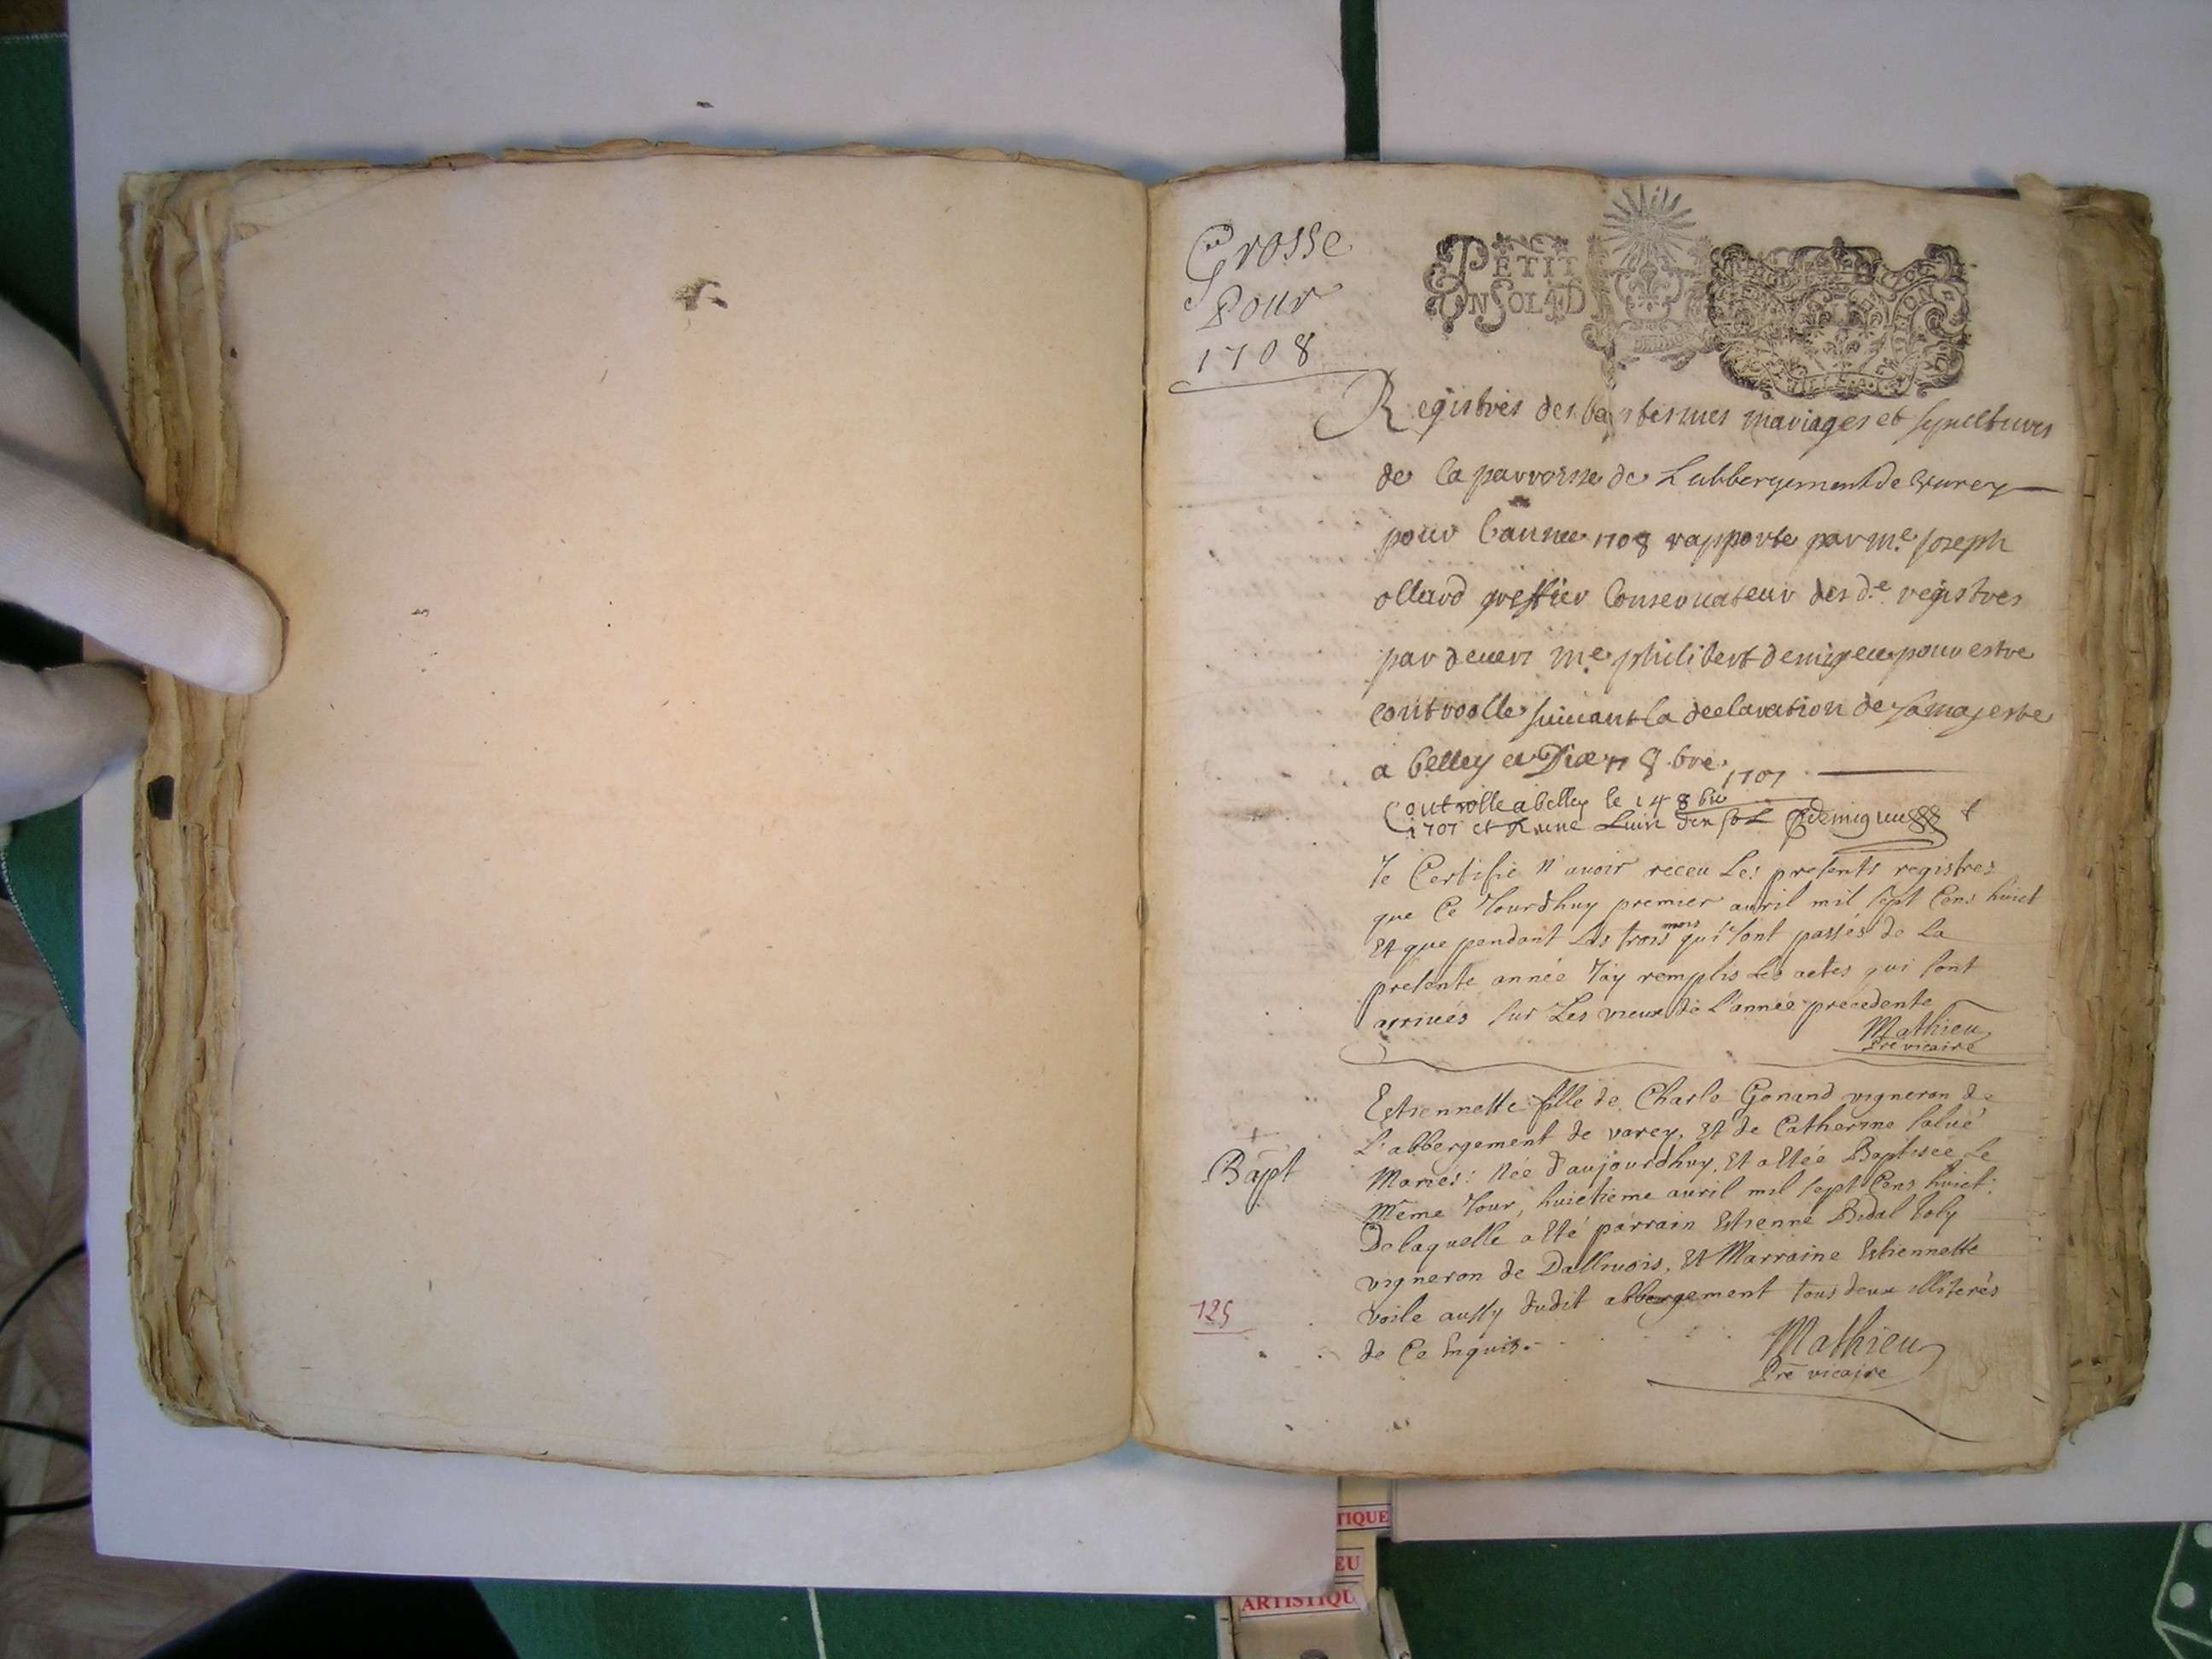 Grosse
Pour
1708
PETIT
UN SOL 4 D
Registres des baptesmes mariages et sepultures
de la parroisse de Labbergement de Varey
pour lannee 1708 rapporte par me Joseph
ollard greffier Conservateur des de registres
par devers me philibert demigieu pour estre
controolle suivant la declaration de sa majeste
a belley ce 8bre 1707
Controlle a belley le 14 8bre
1707 et Reçeu
Je Certifie n'avoir receu Les presents registres
que Ce Jourdhuy premier avril mil sept Cens huict
Et que pendant Les trois mois qui sont passés de La
presente année J'ay remplis Les actes qui sont
arrivés sur Les vieux de L'année precedente
Mathieu
Pre vicaire
Estiennette fille de Charle Genand vigneron de
L'abbergement de varey, Et de Catherine Salué
Mariés: Née d'aujourdhuy, Et a Esté Baptisée Le
Même Jour, huictieme avril mil sept Cens huict.
De laquelle a Esté parrain Estienne Bidal Joly
vigneron de Dallivois, Et Marraine Estiennette
voile aussy dudit abbergement tous deux illiterés
de Ce Enquis.
Mathieu
Pre vicaire
Bapt
125
TIQUE
EU
ARTISTIQU